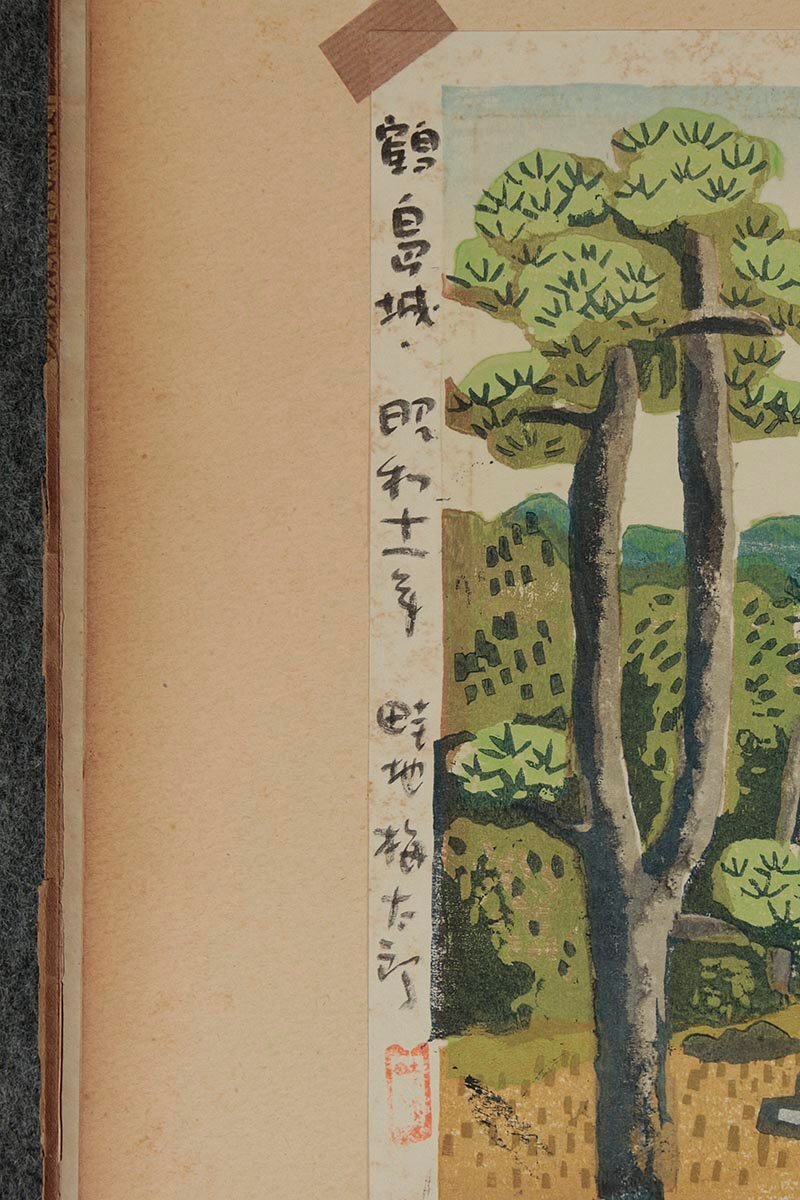 鶴島城．昭和十一年 畦地梅太郎